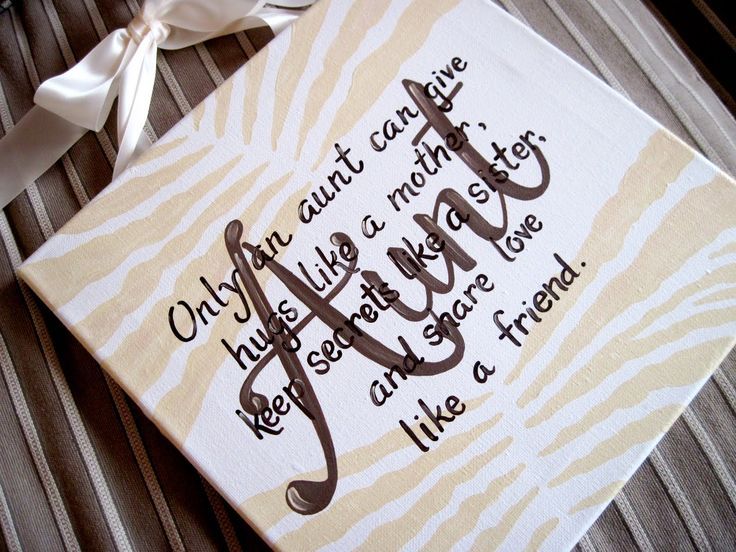 Aunt
Only an aunt can give
hugs like a mother,
keep secrets like a sister,
and share love
like a friend.